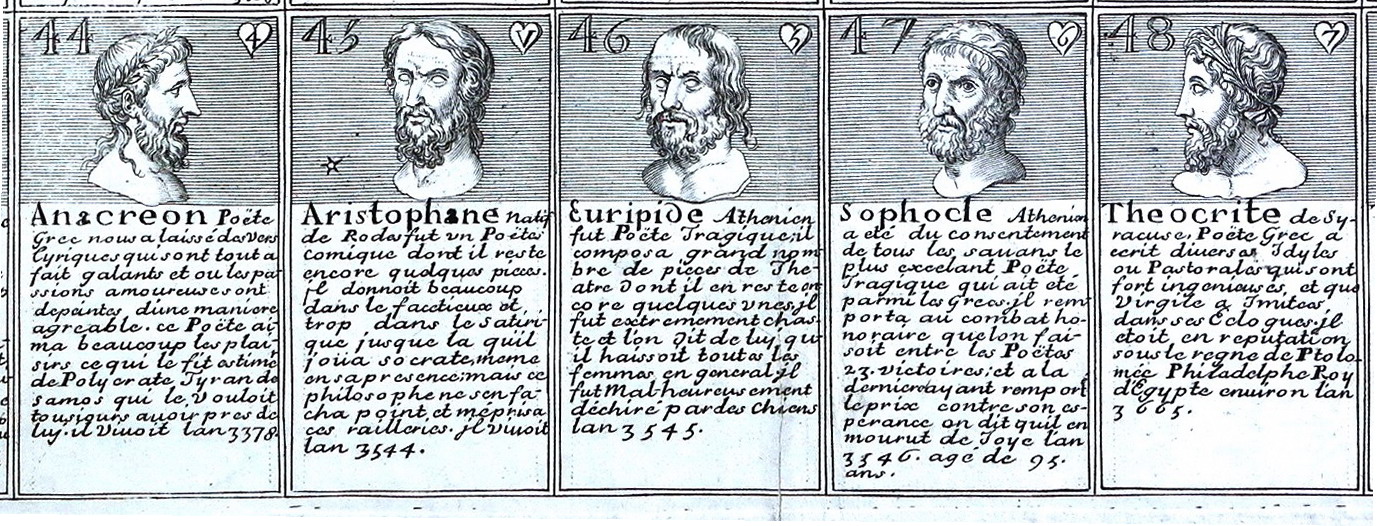 44
4
Anacreon Poëte
Grec nous a laissé des vers
Lyriques qui sont tout a
fait galants et ou les pa-
ssions amoureuses ont
depeintes, d'une maniere
agreable. ce Poëte ai-
ma beaucoup les plai-
sirs ce qui le fit estimé
de Polycrate Tyran de
samos qui le vouloit
tousiours auoir pres de
luy. il Viuoit lan 3378.
45
V
Aristophane natif
de Rodes fut vn Poëte
comique dont il reste
encore quelques pieces.
jl donnoit beaucoup
dans le facetieux et,
trop dans le satiri-
que jusque la quil
joüa socrate, meme
en sa presence: mais ce
philosophe ne sen fa-
cha point, et méprisa
ces railleries. jl viuoit
lan 3544.
46
5
Euripide Athenien
fut Poëte Tragique; il
composa grand nom-
bre de pieces de The-
atre dont il en reste en
core quelques vnes, jl
fut extremement chas-
te et lon dit de luy, qu
il haissoit toutes les
femmes en general jl
fut Malheureusement
déchiré par des chiens
lan 3545.
47
6
Sophocle Athenien
a eté du consentement
de tous les sauans le
plus excelant Poëte
Tragique qui ait eté
parmi les Grecs. il rem
porta au combat ho-
noraire quelon fai-
soit entre les Poëtes
23. victoires; et a la
derniere ayant remport
le prix contre son es-
perance on dit quil en
mourut de Joye lan
3546. agé de 95.
ans.
48
7
Theocrite de Sy-
racuse. Poëte Grec a
ecrit diuerses Idyles
ou Pastorales qui sont
fort ingenieuses, et que
Virgile a Imitées
dans ses Eclogues. jl
etoit en reputation
sous le regne de Ptolo-
mée Philadelphe Roy
d'Egypte enuiron lan
3665.